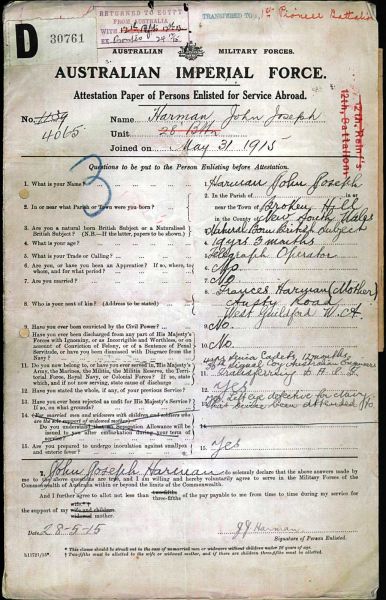 D 30761
RETURNED TO EGYPT
FROM AUSTRALIA
WITH
TRANSFERRED TO 1st Pioneer Battalion
AUSTRALIAN MILITARY FORCES.
AUSTRALIAN IMPERIAL FORCE.
Attestation Paper of Persons Enlisted for Service Abroad.
No. 4065
Name Harman John Joseph
Unit 28 Bttn
Joined on May 31 1915
12th Battalion
Questions to be put to the Person Enlisting before Attestation.
3
1. What is your Name?
1. Harman John Joseph
2. In or near what Parish or Town were you born?
2. In the Parish of in or
near the Town of Broken Hill
in the County of New South Wales
3. Are you a natural born British Subject or a Naturalised
British Subject? (N.B.—If the latter, papers to be shown.)
3. Natural Born British Subject
4. What is your age?
4. 19 yrs 3 months
5. What is your Trade or Calling?
5. Telegraph Operator
6. Are you, or have you been an Apprentice? If so, where,
whom, and for what period?
6. No
7. Are you married?
7. No
8. Who is your next of kin? (Address to be stated)
8. Frances Harman (Mother)
Road
West Guildford W.A.
9. Have you ever been convicted by the Civil Power?
9. No
10. Have you ever been discharged from any part of His Majesty's
Forces with Ignominy, or as Incorrigible and Worthless, or on
account of Conviction of Felony, or of a Sentence of Penal
Servitude, or have you been dismissed with Disgrace from the
Navy?
10. No
11. Do you now belong to, or have you ever served in, His Majesty's
Army, the Marines, the Militia, the Militia Reserve, the Territorial
Reserve, Royal Navy, or Colonial Forces? If so, state
which, and if not now serving, state cause of discharge
11. Senior Cadets 12 months
Signal Coy Australian Engineers
12. Have you stated the whole, if any, of your previous Service?
12. Yes
13. Have you ever been rejected as unfit for His Majesty's Service?
If so, on what grounds?
13. Yes left eye defective
since been attended to
14. (For married men and widowers with children and soldiers who
are the sole support of widowed mother)—
Do you understand that no Separation Allowance will be
issued to you after embarkation during your term of
service?
14.
15. Are you prepared to undergo inoculation against smallpox
and enteric fever?
15. Yes
I, John Joseph Harman do solemnly declare that the above answers made by
me to the above questions are true, and I am willing and hereby voluntarily agree to serve in the Military Forces of the
Commonwealth of Australia within or beyond the limits of the Commonwealth.
And I further agree to allot not less than two-fifths three-fifths of the pay payable to me from time to time during my service for
the support of my wife wife and children widowed mother.
Date 28-5-15
J J Harman
Signature of Person Enlisted.
* This clause should be struck out in the case of unmarried men, or widowers without children under 16 years of age.
† Two-fifths must be allotted to the wife, and if there are children three-fifths must be allotted.